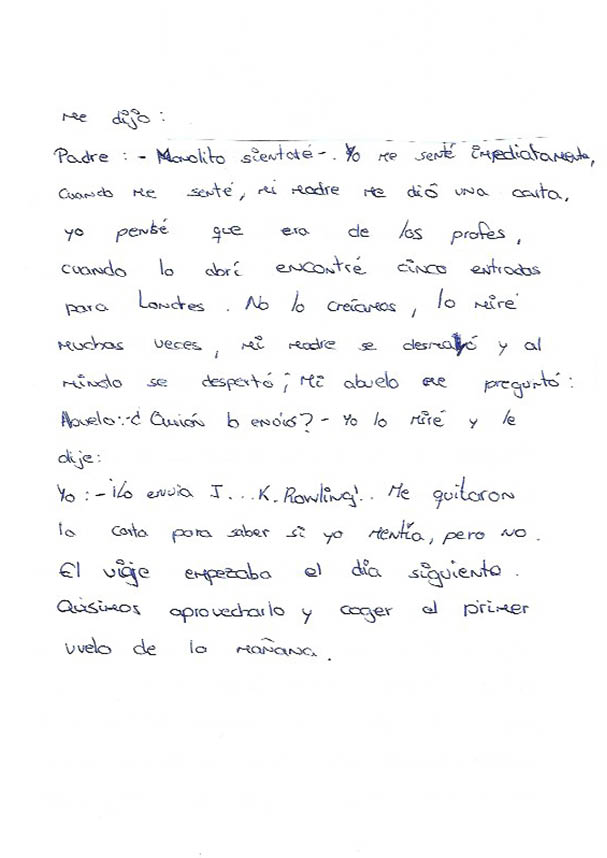 Me dijo:
Padre: - Manolito sientaté-. Yo me senté inmediatamente,
cuando me senté, mi madre me dió una carta,
yo pensé que era de los profes,
cuando la abrí encontré cinco entradas
para Londres. No lo creíamos, lo miré
muchas veces, mi madre se desmayó y al
minuto se despertó; Mi abuelo me preguntó:
Abuelo:-¿Quién lo envió?- Yo lo miré y le
dije:
Yo:- ¡Lo envia J...K.Rowling!.. Me quitaron
la carta para saber si yo mentía, pero no.
El viaje empezaba el día siguiente.
Quisimos aprovecharlo y coger el primer
vuelo de la mañana.